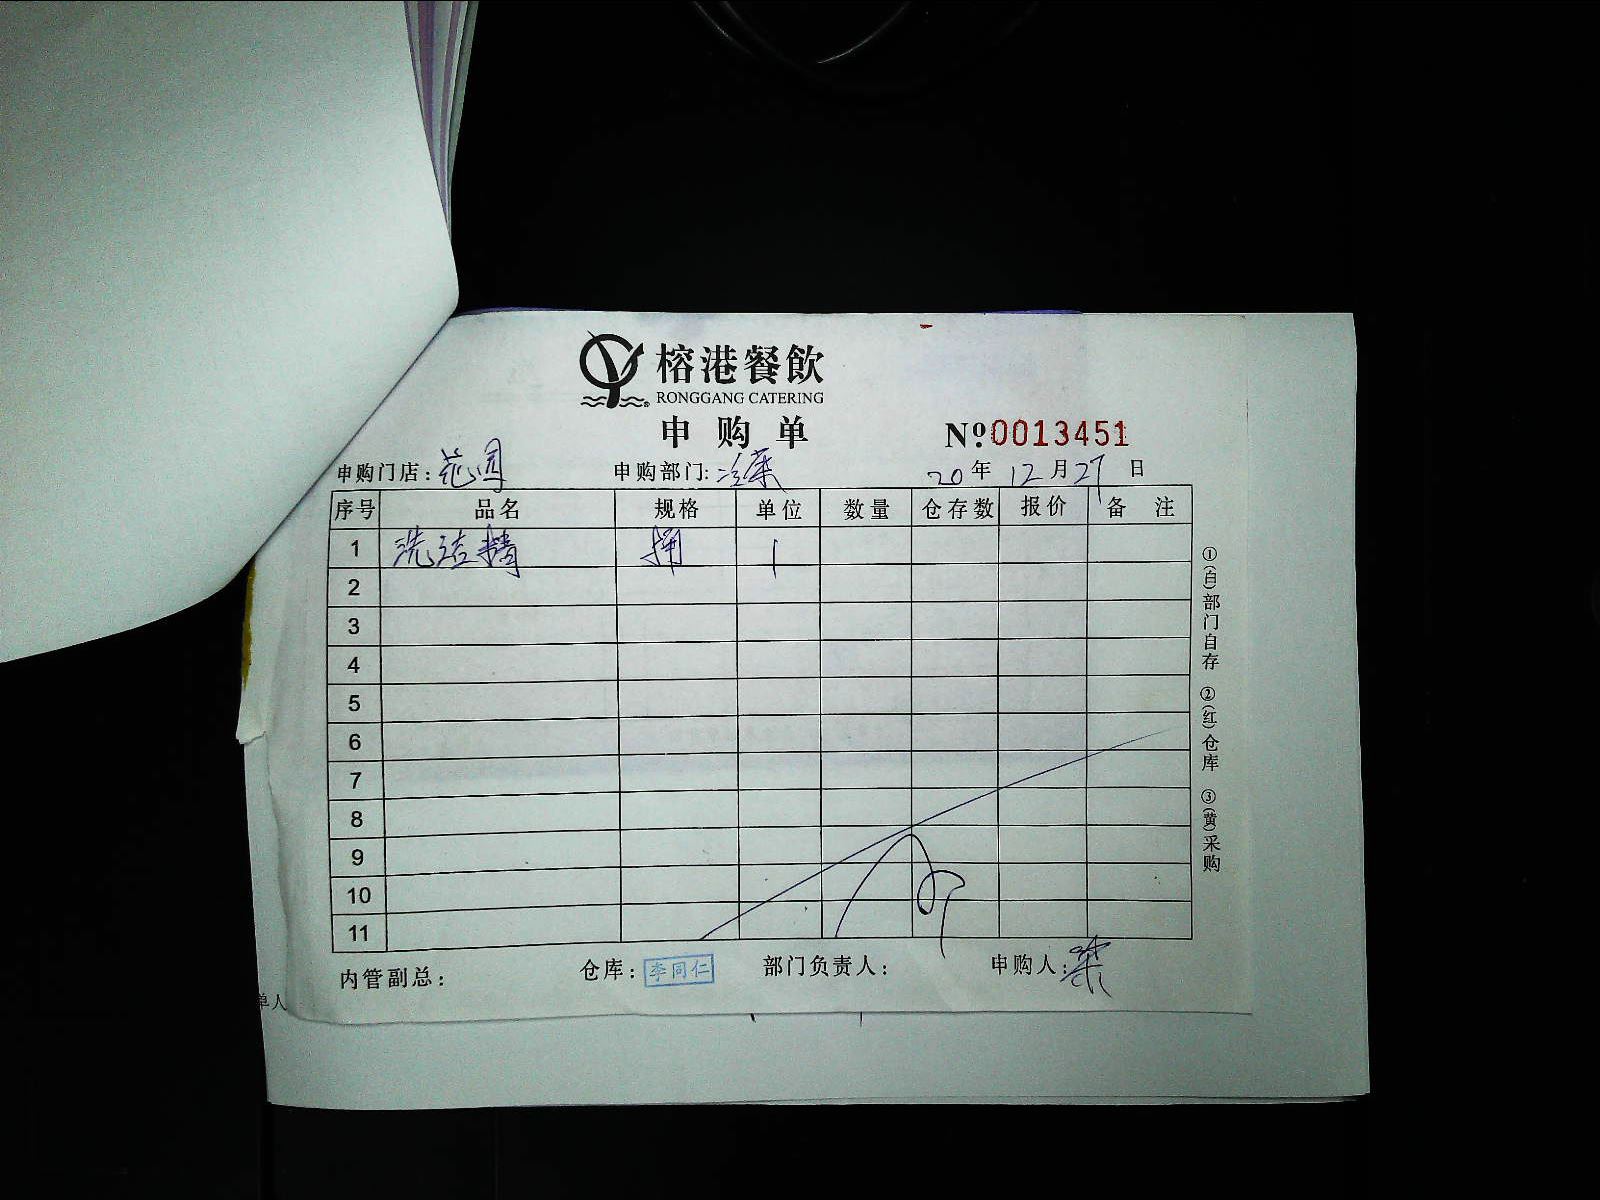 榕港餐飲
RONGGANG CATERING
申购单
Nº0013451
申购门店: 花园 申购部门: 冷菜 20年12月27日
序号 品名 规格 单位 数量 仓存数 报价 备注
1 洗洁精 桶 1
2
3
4
5
6
7
8
9
10
11
内管副总: 仓库: 李同仁 部门负责人: 申购人:
①(白)部门自存 ②(红)仓库 ③(黄)采购
单人